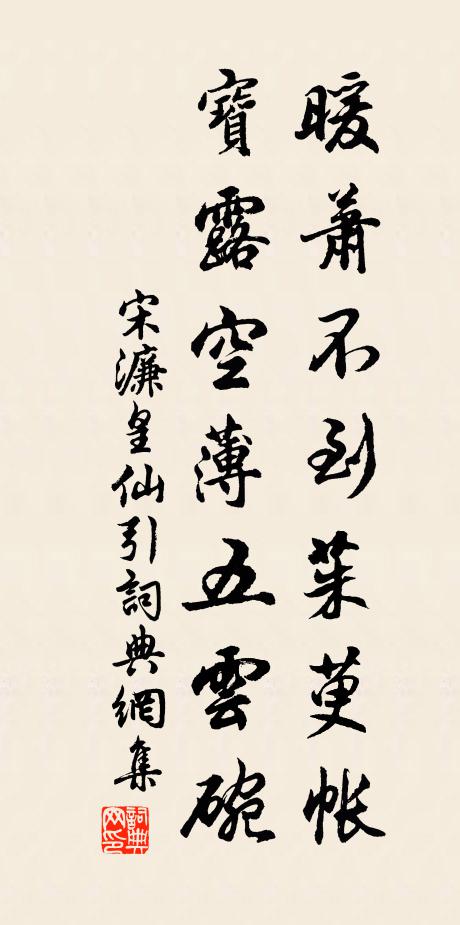 暖蕭不到茱萸帳
寶露空薄五雲碗
宋濂皇仙引詞典網集
詞典網印